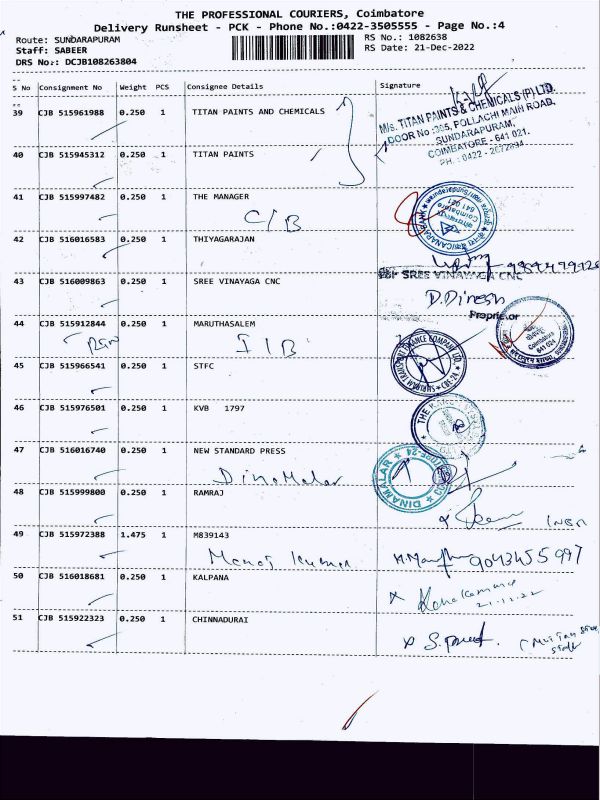 THE PROFESSIONAL COURIERS, Coimbatore
Delivery Runsheet - PCK - Phone No.:0422-3505555 - Page No.:4
Route: SUNDARAPURAM RS No.: 1082638
Staff: SABEER RS Date: 21-Dec-2022
DRS No.: DCJB108263804
S No Consignment No Weight PCS Consignee Details Signature
39 CJB 515961988 0.250 1 TITAN PAINTS AND CHEMICALS
M/s. TITAN PAINTS & CHEMICALS (P) LTD.
DOOR No :305, POLLACHI MAIN ROAD,
SUNDARAPURAM,
COIMBATORE - 641 021.
40 CJB 515945312 0.250 1 TITAN PAINTS
PH. : 0422 -
41 CJB 515997482 0.250 1 THE MANAGER
C/B
42 CJB 516016583 0.250 1 THIYAGARAJAN
43 CJB 516009863 0.250 1 SREE VINAYAGA CNC
For SREE VINAYAGA CNC
D. Dinesh
Proprietor
44 CJB 515912844 0.250 1 MARUTHASALEM
I/B
45 CJB 515966541 0.250 1 STFC
SHRIRAM TRANSPORT FINANCE COMPANY LTD. CBE-24
46 CJB 515976501 0.250 1 KVB 1797
THE
47 CJB 516016740 0.250 1 NEW STANDARD PRESS
Dinamalar
DINAMALAR
48 CJB 515999800 0.250 1 RAMRAJ
49 CJB 515972388 1.475 1 M839143
Manoj kumar
9043455997
50 CJB 516018681 0.250 1 KALPANA
21.12.22
51 CJB 515922323 0.250 1 CHINNADURAI